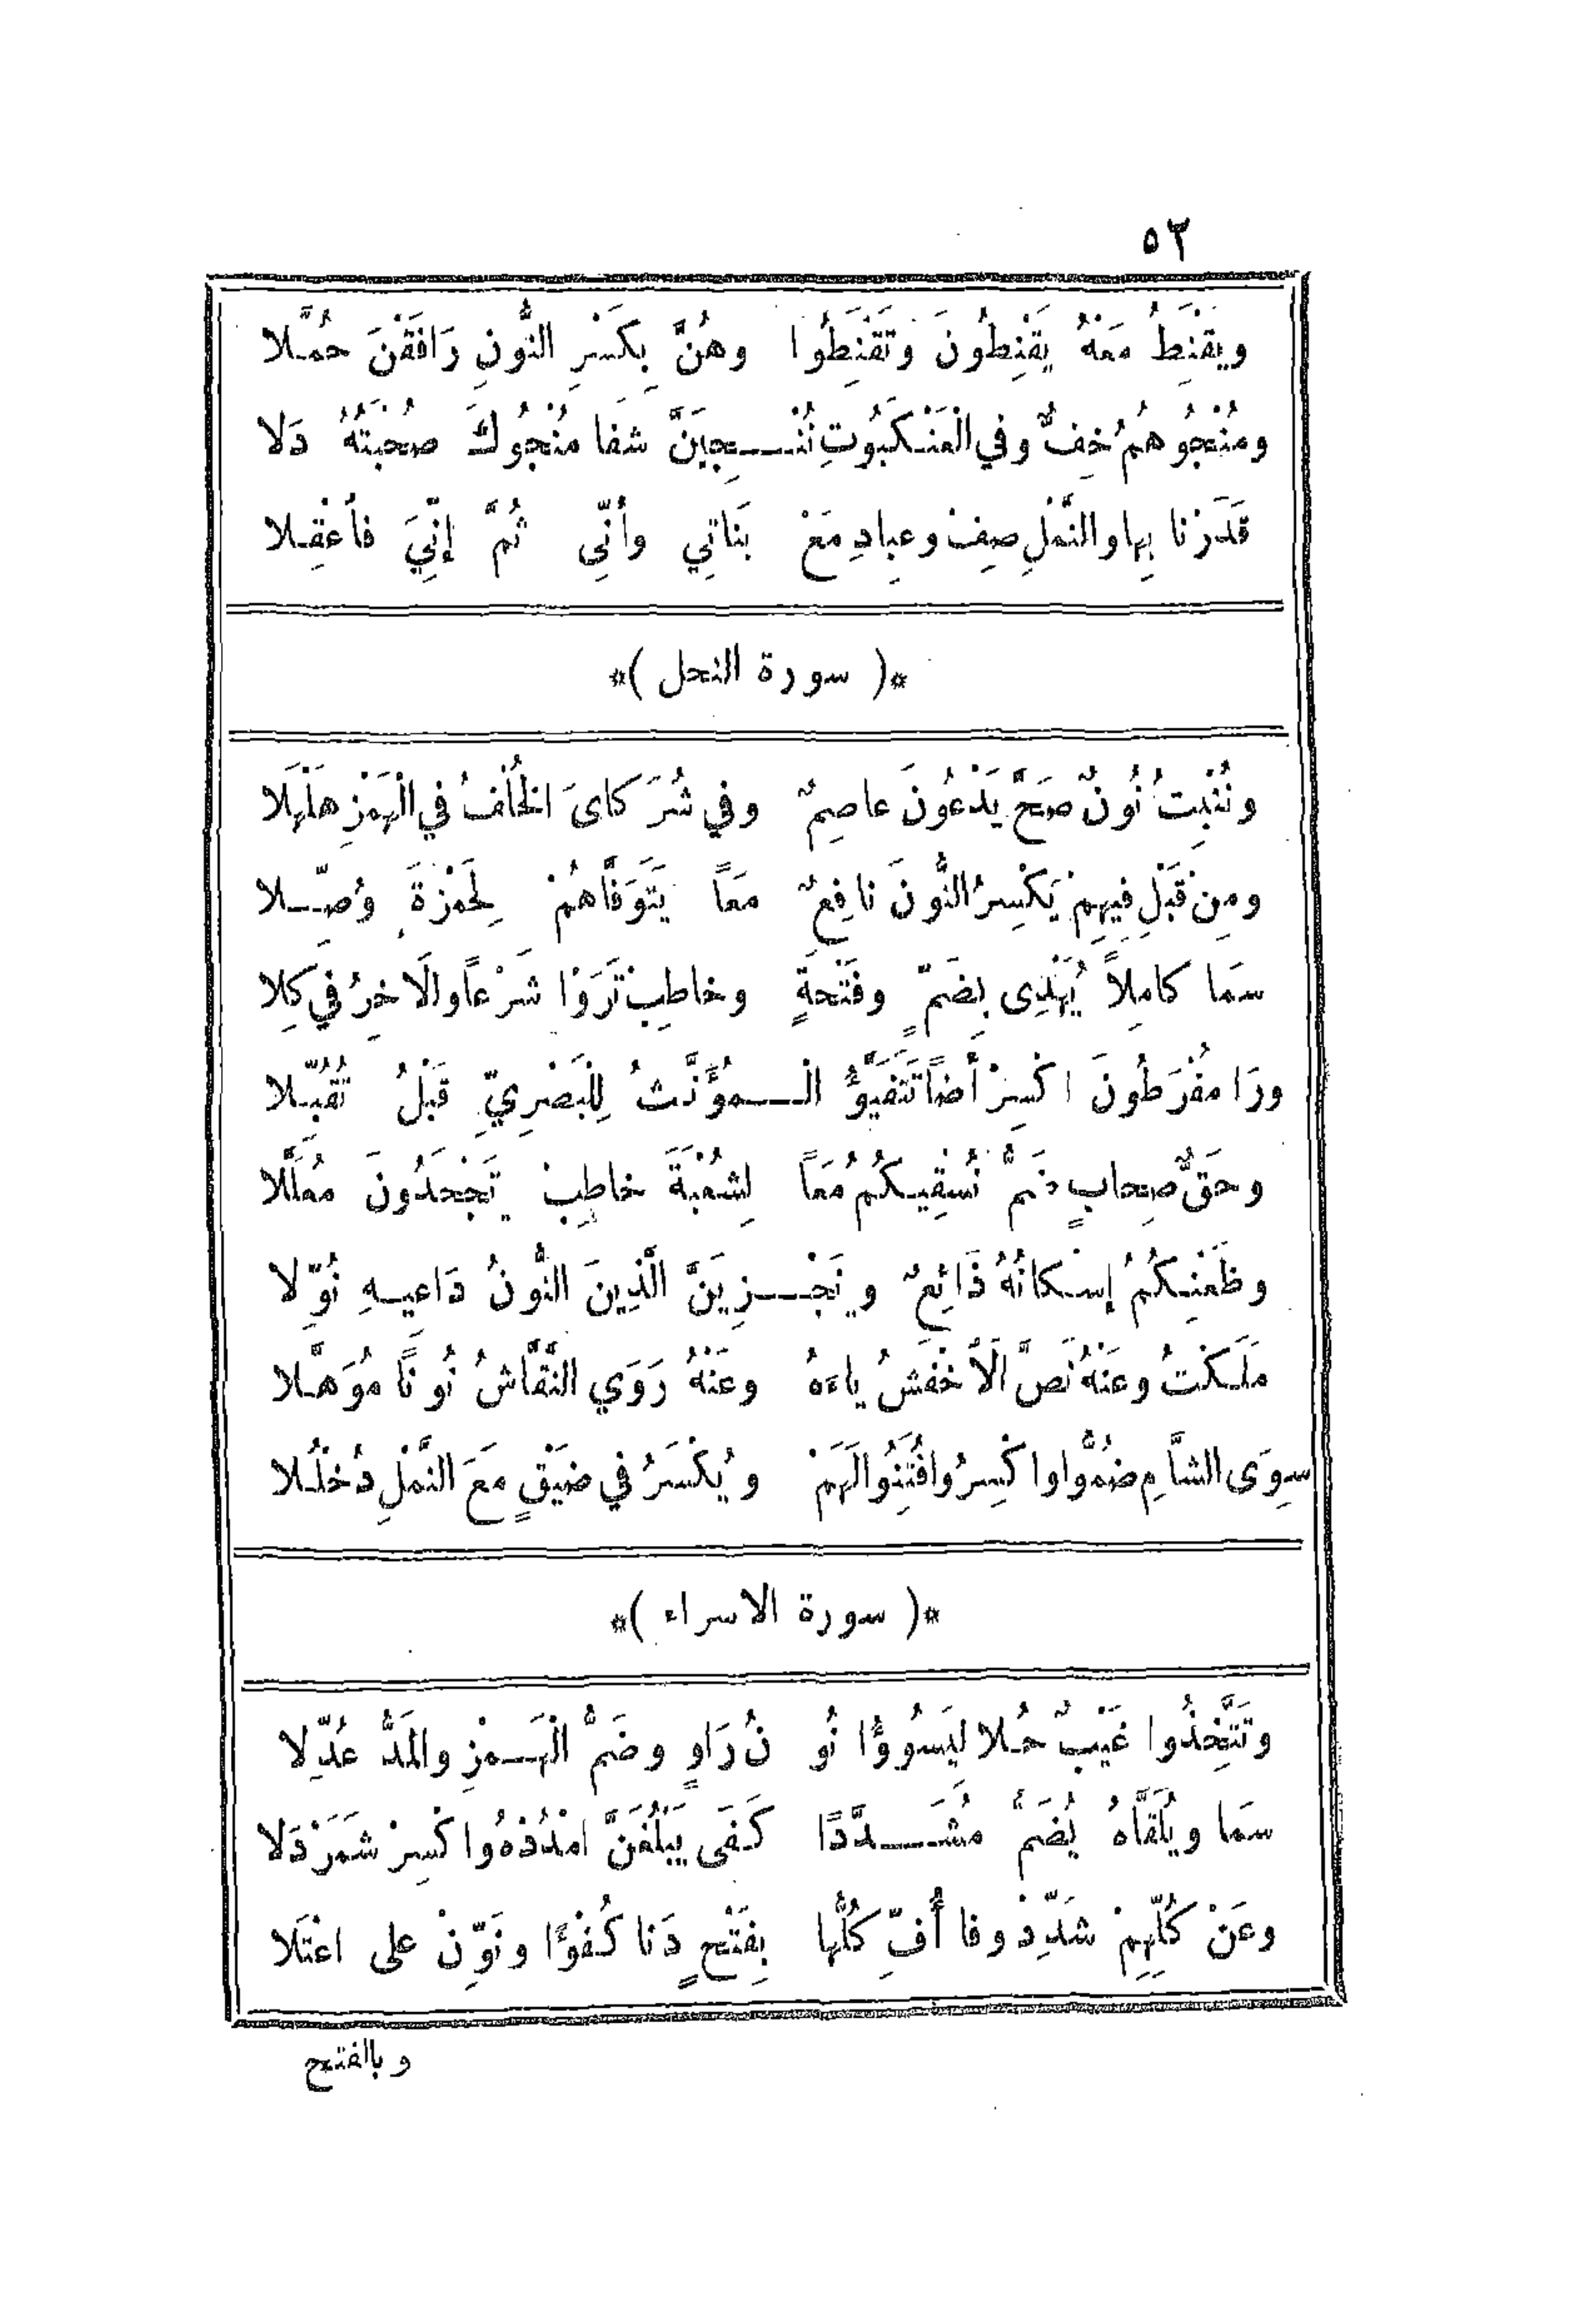 ٥٢
ويَقْنَطُ مَعْهُ يَقْنِطُونَ وَتَقْنَطُوا وهُنَّ بِكَسْرِ النُّونِ رَافَقْنَ حُمَّلا
ومُنْجُوهُمُ خِفٌّ وفي الْعَنْكَبُوتِ نُنْجِيَنَّ شفَا مُنْجُوكَ صُحْبَتُهُ دَلا
قَدَرْنا بِها والنَّمْلِ صِفْ وعِبادِ مَعْ بَناتِي وأنِّى ثُمَّ إنِّيَ فأعْقِلا
*( سورة النحل )*
ونُنْبِتُ نُونٌ صَحَّ يَدْعُونَ عاصِمٌ وفي شُرَكاىَ الخُلْفُ في الْهَمْزِ هَلْهَلا
ومِن قَبْلِ فِيهِمْ يَكْسِرُ النُّونَ نافِعٌ مَعًا يَتَوَفَّاهُمْ لِحَمْزَةَ وُصِّلا
سَمَا كامِلاً يُهْدِى بِضَمٍّ وفَتْحَةٍ وخاطِبْ تَرَوْا شَرْعًا والَاخِرُ في كِلا
ورَا مُفْرَطُونَ اكْسِرْ أضًا تَتَفَيَّؤُ الْمُؤَنَّثُ لِلْبَصْرِيِّ قَبْلُ تُقُبِّلا
وحَقُّ صِحابٍ ضَمَّ نُسْقِيكُمُ مَعًا لِشُعْبَةَ خاطِبْ تَجْحَدُونَ مُعَلَّلا
وظَعْنِكُمُ إسْكانُهُ ذَائِعٌ ونَجْزِيَنَّ الَّذِينَ النُّونُ دَاعيهِ نُوِّلا
مَلَكْتُ وعَنْهُ نَصَّ الَاْخفَشُ ياءَهُ وعَنْهُ رَوَي النَّقَّاشُ نُونًا مُوَهَّلا
سِوَى الشَّامِ ضُمُّوا واكْسِرُوا فُتِنُوا لَهَمْ ويُكْسَرُ في ضَيْقٍ مَعَ النَّمْلِ دُخْلُلا
*( سورة الاسراء )*
وتَتَّخِذُوا غَيْبٌ حُلا ليَسُووُّا نُونُ رَاوٍ وضَمُّ الْهَمْزِ والمَدُّ عُدِّلا
سَمَا ويُلَقَّاهُ يُضَمُّ مُشَدَّدًا كَفَى يَبْلُغَنَّ امْدُدْهُ واكْسِرْ شَمَرْدَلا
وعَنْ كُلِّهِمْ شَدِّدْ وفا أُفِّ كُلُّها بِفَتْحٍ دَنا كُفْؤًا ونَوِّنْ على اعْتَلا
وبالفتح